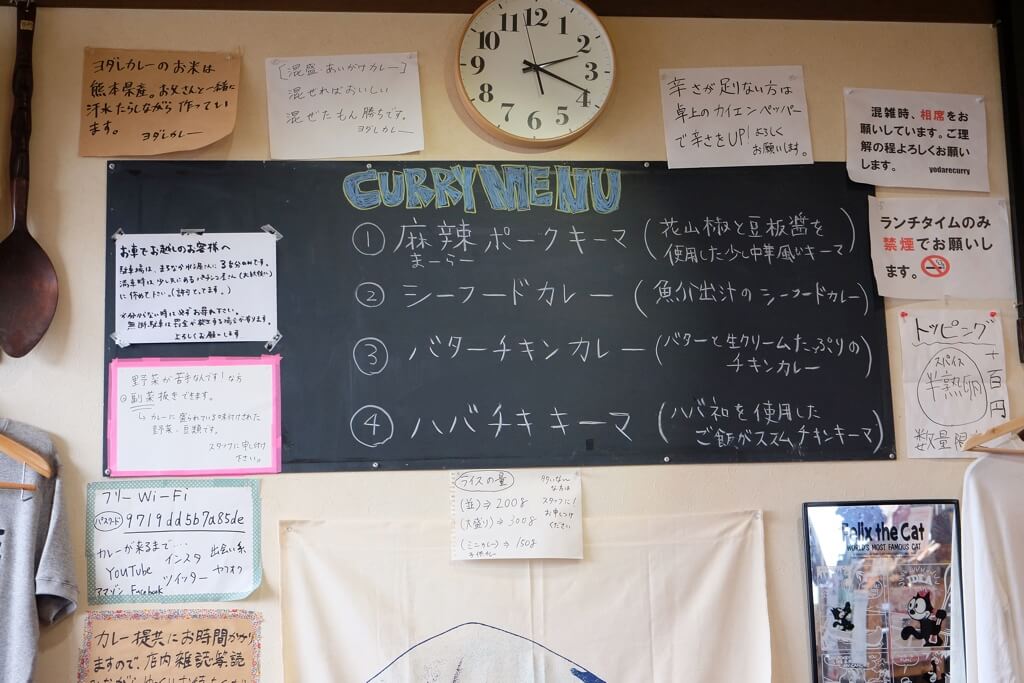 ヨダレカレーのお米は
熊本県産。お父さんと一緒に
汗水たらしながら作ってい
ます。
ヨダレカレー
[混盛・あいがけカレー]
混ぜればおいしい
混ぜたもん勝ちです。
ヨダレカレー
12
1
2
3
4
5
6
7
8
9
10
11
辛さが足りない方は
卓上のカイエンペッパー
で辛さをUP!よろしく
お願いします。
混雑時、相席をお
願いしています。ご理
解の程よろしくお願い
します。
yodarecurry
CURRY MENU
① 麻辣ポークキーマ (花山椒と豆板醤を
まーらー 使用した少し中華風なキーマ)
② シーフードカレー (魚介出汁のシーフードカレー)
③ バターチキンカレー (バターと生クリームたっぷりの
チキンカレー)
④ ハバチキキーマ (ハバネロを使用した
ご飯がススムチキンキーマ)
お車でお越しのお客様へ
よろしくお願いします
ランチタイムのみ
禁煙でお願いし
ます。
トッピング
スパイス
半熟卵
+百円
野菜が苦手なんです!な方
副菜抜きできます。
カレーに盛られている味付けされた
野菜・豆類です。
スタッフに申し付け
下さい。
フリー Wi-Fi
パスワード 9719dd5b7a85de
カレーが来るまで…
インスタ 出会い系
YouTube ツイッター ヤフオク
アマゾン Facebook
ライスの量
(並)⇒200g
(大盛り)⇒300g
(ミニカレー)⇒150g
スタッフに
お申しつけ
ください
カレー提共にお時間がかかり
ますので、店内雑誌等読
Felix the Cat
WORLD'S MOST FAMOUS CAT